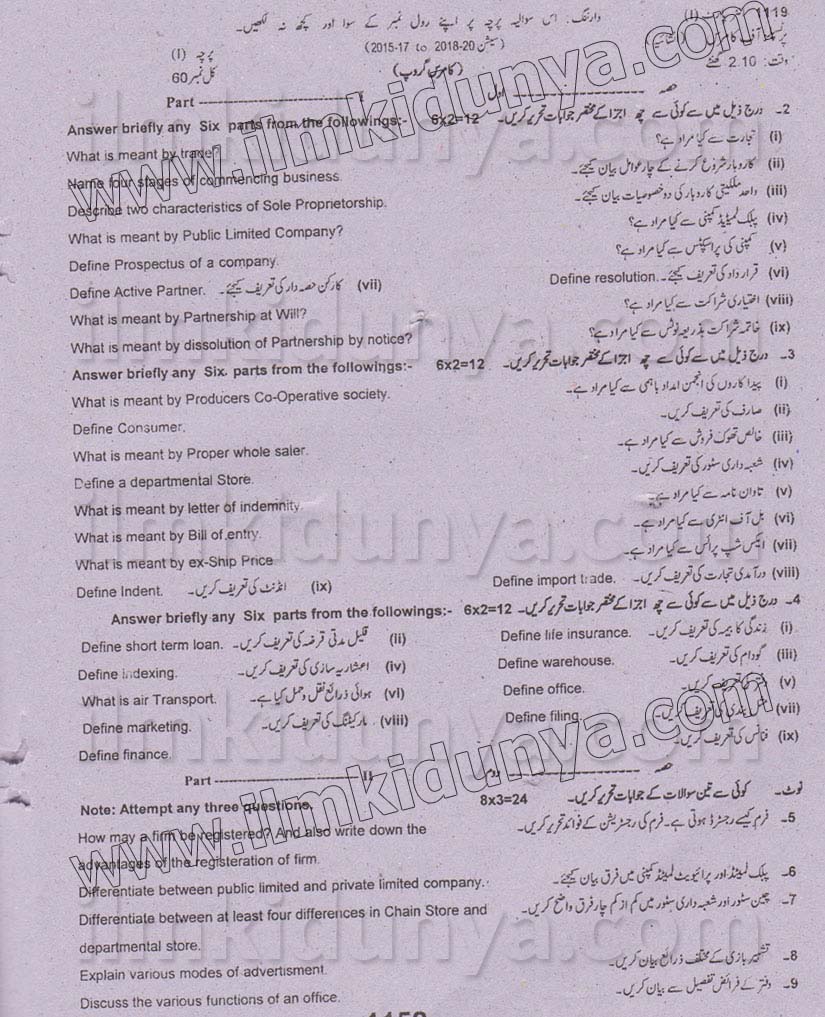 1119
وارننگ: اس سوالیہ پرچہ پر اپنے رول نمبر کے سوا اور کچھ نہ لکھیں۔
(سیشن 2018-20 to 2015-17)
پرچہ (I)
وقت: 2.10 گھنٹے
(کامرس گروپ)
کل نمبر 60
Part -------------------- I حصہ -------------------- اول
Answer briefly any Six parts from the followings:- 6x2=12 2۔ درج ذیل میں سے کوئی سے چھ اجزا کے مختصر جوابات تحریر کریں۔
What is meant by trade? (i) تجارت سے کیا مراد ہے؟
Name four stages of commencing business. (ii) کاروبار شروع کرنے کے چار عوامل بیان کیجئے۔
Describe two characteristics of Sole Proprietorship. (iii) واحد ملکیتی کاروبار کی دو خصوصیات بیان کیجئے۔
What is meant by Public Limited Company? (iv) پبلک لمیٹڈ کمپنی سے کیا مراد ہے؟
Define Prospectus of a company. (v) کمپنی کی پراسپکٹس سے کیا مراد ہے؟
Define Active Partner. (vii) کارکن حصہ دار کی تعریف کیجئے۔ Define resolution. (vi) قرارداد کی تعریف کیجئے۔
What is meant by Partnership at Will? (viii) اختیاری شراکت سے کیا مراد ہے؟
What is meant by dissolution of Partnership by notice? (ix) خاتمہ شراکت بذریعہ نوٹس سے کیا مراد ہے؟
Answer briefly any Six. parts from the followings:- 6x2=12 3۔ درج ذیل میں سے کوئی سے چھ اجزا کے مختصر جوابات تحریر کریں۔
What is meant by Producers Co-Operative society. (i) پیداکاروں کی انجمن امداد باہمی سے کیا مراد ہے۔
Define Consumer. (ii) صارف کی تعریف کریں۔
What is meant by Proper whole saler. (iii) خالص تھوک فروش سے کیا مراد ہے۔
Define a departmental Store. (iv) شعبہ داری سٹور کی تعریف کریں۔
What is meant by letter of indemnity. (v) تاوان نامہ سے کیا مراد ہے۔
What is meant by Bill of entry. (vi) بل آف انٹری سے کیا مراد ہے۔
What is meant by ex-Ship Price (vii) ایکس شپ پرائس سے کیا مراد ہے۔
Define Indent. (ix) انڈنٹ کی تعریف کریں۔ Define import trade. (viii) درآمدی تجارت کی تعریف کریں۔
Answer briefly any Six parts from the followings:- 6x2=12 4۔ درج ذیل میں سے کوئی سے چھ اجزا کے مختصر جوابات تحریر کریں۔
Define short term loan. (ii) قلیل مدتی قرضہ کی تعریف کریں۔ Define life insurance. (i) زندگی کا بیمہ کی تعریف کریں۔
Define indexing. (iv) اعشاریہ سازی کی تعریف کریں۔ Define warehouse. (iii) گودام کی تعریف کریں۔
What is air Transport. (vi) ہوائی ذرائع نقل و حمل کیا ہے۔ Define office. (v) دفتر کی تعریف کریں۔
Define marketing. (viii) مارکیٹنگ کی تعریف کریں۔ Define filing. (vii) بندی کی تعریف کریں۔
Define finance. (ix) فنانس کی تعریف کریں۔
Part -------------------- II حصہ -------------------- دوم
Note: Attempt any three questions. 8x3=24 نوٹ۔ کوئی سے تین سوالات کے جوابات تحریر کریں۔
How may a firm be registered? And also write down the 5۔ فرم کیسے رجسٹرڈ ہوتی ہے۔ فرم کی رجسٹریشن کے فوائد تحریر کریں۔
advantages of the registeration of firm.
Differentiate between public limited and private limited company. 6۔ پبلک لمیٹڈ اور پرائیویٹ لمیٹڈ کمپنی میں فرق بیان کیجئے۔
Differentiate between at least four differences in Chain Store and 7۔ چین سٹور اور شعبہ داری سٹور میں کم از کم چار فرق واضح کریں۔
departmental store.
Explain various modes of advertisment. 8۔ تشہیر بازی کے مختلف ذرائع بیان کریں۔
Discuss the various functions of an office. 9۔ دفتر کے فرائض تفصیل سے بیان کریں۔
www.ilmkidunya.com
ilmkidunya.com
ilmkidunya.com
ilmkidunya.com
ilmkidunya.com
www.ilmkidunya.com
ilmkidunya.com